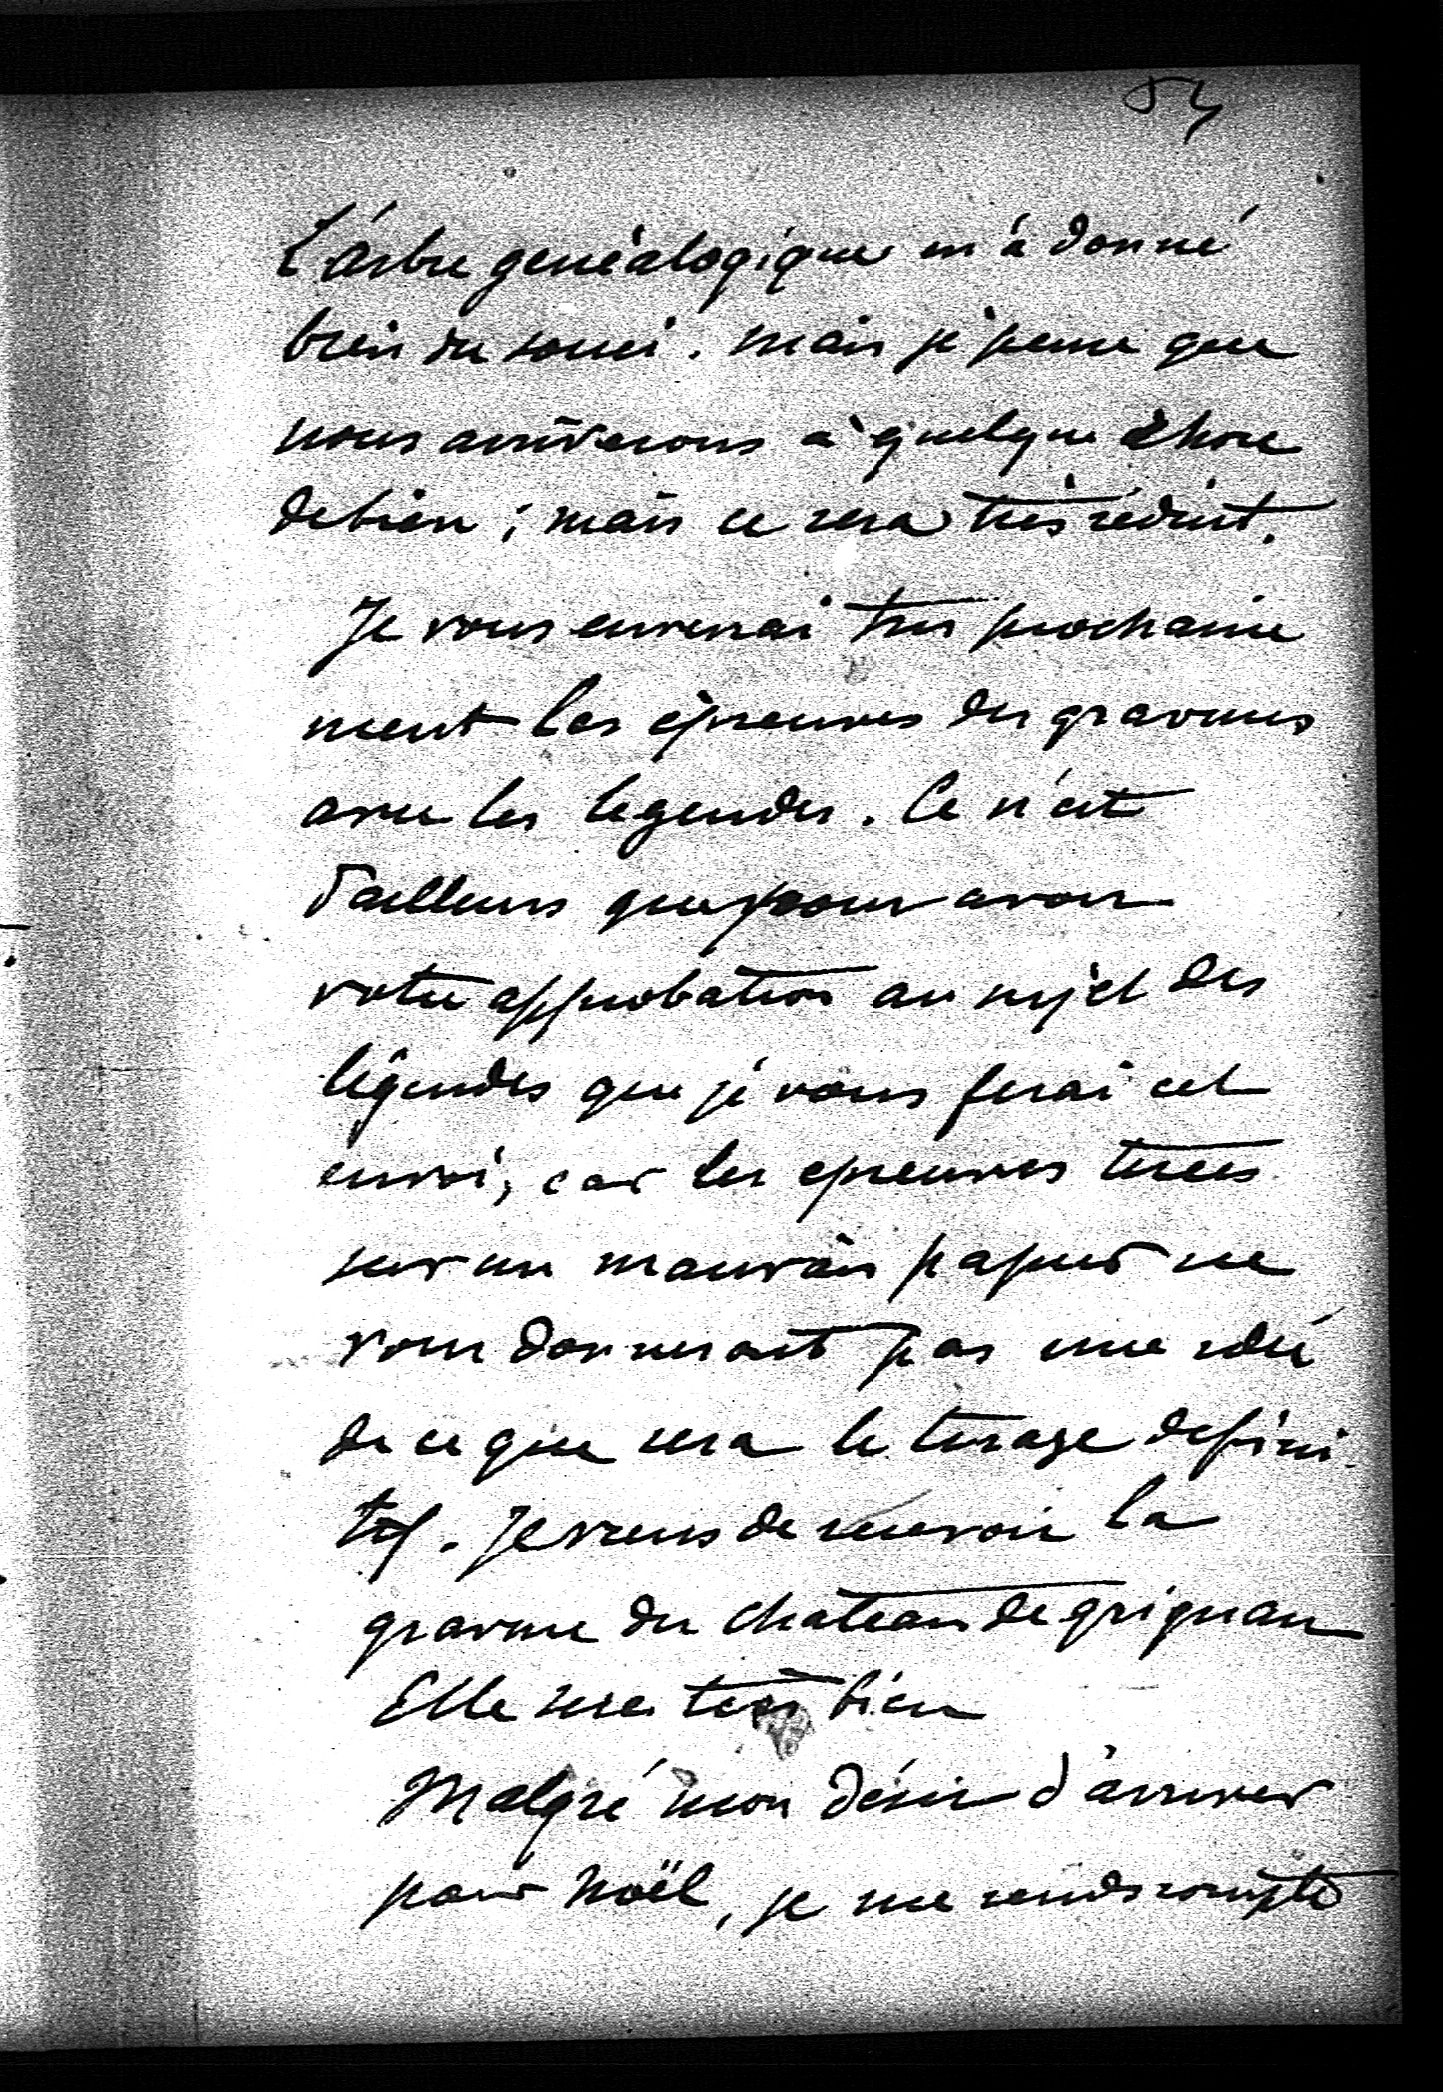 54
L'arbre généalogique m'a donné
bien du souci. mais je pense que
nous arriverons à quelque chose
de bien ; mais ce sera très réduit.
Je vous enverrai très prochaine
ment les épreuves des gravures
avec les legendes. Ce n'est
d'ailleurs que pour avoir
votre approbation au sujet des
légendes que je vous ferai cet
envoi, car les epreuves tirées
sur un mauvais papier ne
vous donneront pas une idée
de ce que sera le tirage defini-
tif. Je viens de recevoir la
gravure du chateau de grignan
Elle sera très bien
Malgré mon désir d'arriver
pour Noël, je me rends compte